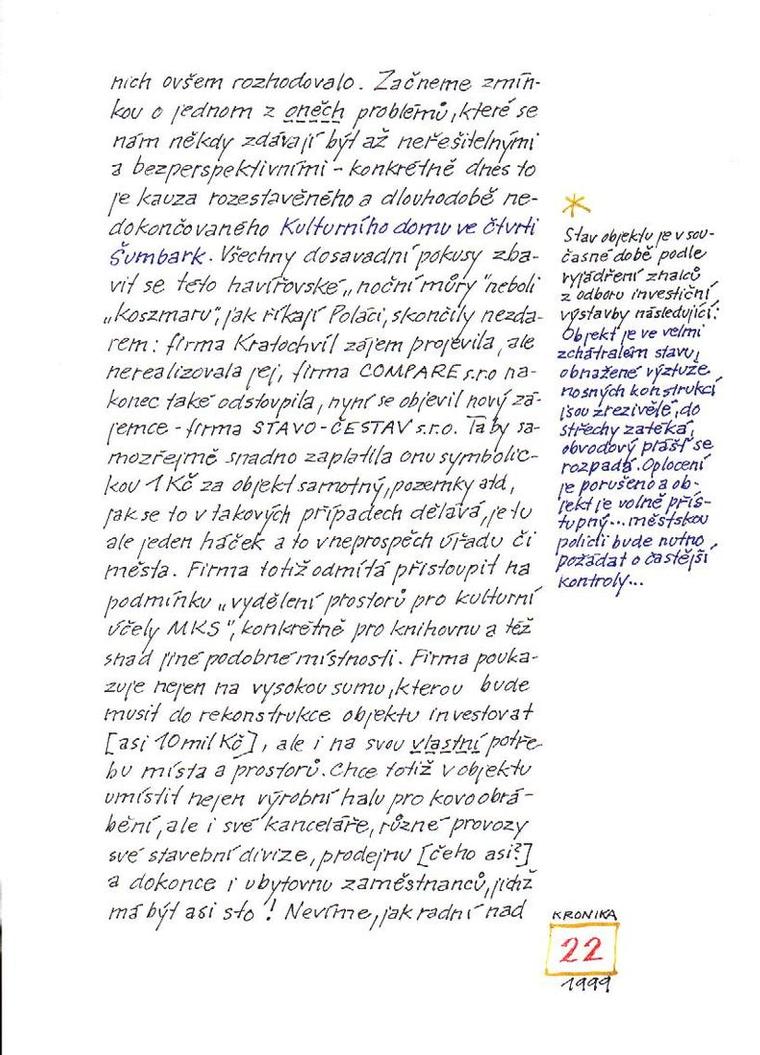 nich ovšem rozhodovalo. Začneme zmín-
kou o jednom z oněch problémů, které se
nám někdy zdávají být až neřešitelnými
a bezperspektivními - konkrétně dnes to
je kauza rozestavěného a dlouhodobě ne-
dokončovaného Kulturního domu ve čtvrti
Šumbark. Všechny dosavadní pokusy zba-
vit se této havířovské „noční můry" neboli
„koszmaru", jak říkají Poláci, skončily nezda-
rem: firma Kratochvíl zájem projevila, ale
nerealizovala jej, firma COMPARE s.r.o na-
konec také odstoupila, nyní se objevil nový zá-
jemce - firma STAVO-ČESTAV s.r.o. Ta by sa-
mozřejmě snadno zaplatila onu symbolic-
kou 1 Kč za objekt samotný, pozemky atd,
jak se to v takových případech dělává, je tu
ale jeden háček a to v neprospěch úřadu či
města. Firma totiž odmítá přistoupit na
podmínku „vydělení prostorů pro kulturní
účely MKS", konkrétně pro knihovnu a též
snad jiné podobné místnosti. Firma pouka-
zuje nejen na vysokou sumu, kterou bude
musit do rekonstrukce objektu investovat
[asi 10 mil Kč], ale i na svou vlastní potře-
bu místa a prostorů. Chce totiž v objektu
umístit nejen výrobní halu pro kovoobrá-
bění, ale i své kanceláře, různé provozy
své stavební divize, prodejnu [čeho asi?]
a dokonce i ubytovnu zaměstnanců, jichž
má být asi sto! Nevíme, jak radní nad
*
Stav objektu je v sou-
časné době podle
vyjádření znalců
z odboru investiční
výstavby následující:
Objekt je ve velmi
zchátralém stavu,
obnažené výztuže
nosných konstrukcí
jsou zrezivělé, do
střechy zatéká,
obvodový plášť se
rozpadá. Oplocení
je porušeno a ob-
jekt je volně přís-
tupný... městskou
policii bude nutno
požádat o častější
kontroly...
KRONIKA
22
1999